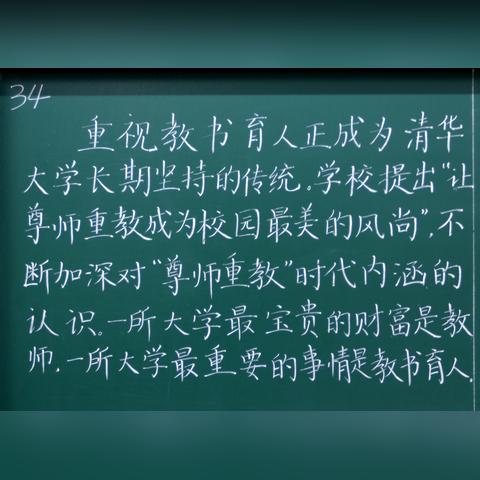 34
重视教书育人正成为清华
大学长期坚持的传统.学校提出“让
尊师重教成为校园最美的风尚”,不
断加深对“尊师重教”时代内涵的
认识。一所大学最宝贵的财富是教
师.一所大学最重要的事情是教书育人.